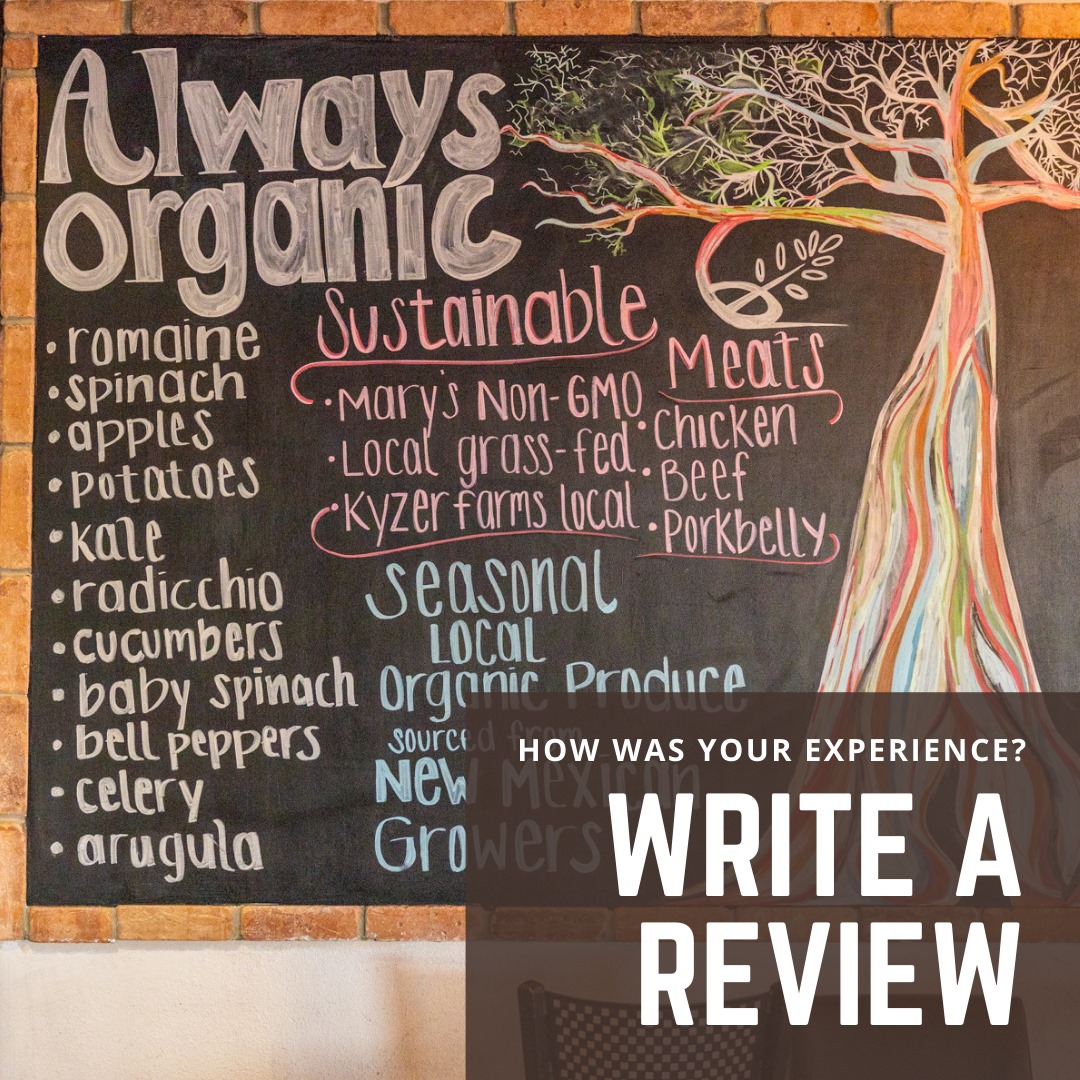 Always
organic
• romaine
• spinach
• apples
• potatoes
• kale
• radicchio
• cucumbers
• baby spinach
• bell peppers
• celery
• arugula
Sustainable
Meats
• Mary's Non-GMO • Chicken
• Local grass-fed • Beef
• Kyzer farms local • Porkbelly
Seasonal
Local
Organic Produce
sourced from
New Mexican
Growers
HOW WAS YOUR EXPERIENCE?
WRITE A
REVIEW